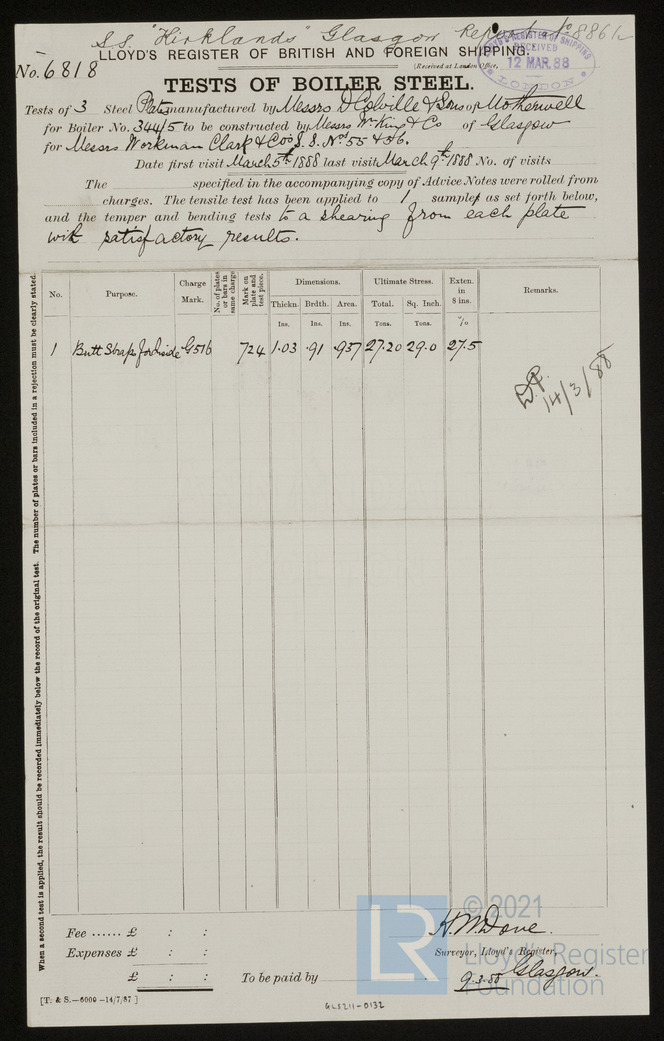 S.S. "Kirklands" Glasgow Report No 8861
LLOYD'S REGISTER OF BRITISH AND FOREIGN SHIPPING.
LLOYD'S REGISTER OF SHIPPING
RECEIVED
12 MAR.88
LONDON
No. 6818
(Received at London Office,
TESTS OF BOILER STEEL.
Tests of 3 Steel Plates manufactured by Messrs D Colville & Sons of Motherwell
for Boiler No. 344/5 to be constructed by Messrs Wm King & Co of Glasgow
for Messrs Workman Clark & Co's S.S. Nos 55 & 56.
Date first visit March 5th 1888 last visit March 9th 1888 No. of visits
The specified in the accompanying copy of Advice Notes were rolled from
charges. The tensile test has been applied to 1 sample as set forth below,
and the temper and bending tests to a shearing from each plate
with satisfactory results.
No. Purpose. Charge Mark. No. of plates or bars in same charge Mark on plate and test piece. Dimensions. Ultimate Stress. Exten. in 8 ins. Remarks.
Thickn. Brdth. Area. Total. Sq. Inch.
Ins. Ins. Ins. Tons. Tons. %
1 Butt Straps for Inside G516 724 1.03 .91 .937 27.20 29.0 27.5
14/3/88
When a second test is applied, the result should be recorded immediately below the record of the original test. The number of plates or bars included in a rejection must be clearly stated.
Fee ...... £ : :
Expenses £ : :
£ : :
To be paid by
H. M. Dove.
Surveyor, Lloyd's Register,
9.3.88 Glasgow.
[T. & S.—6000—14/7/87]
GLS211-0132
LR
© 2021
Lloyd's Register
Foundation